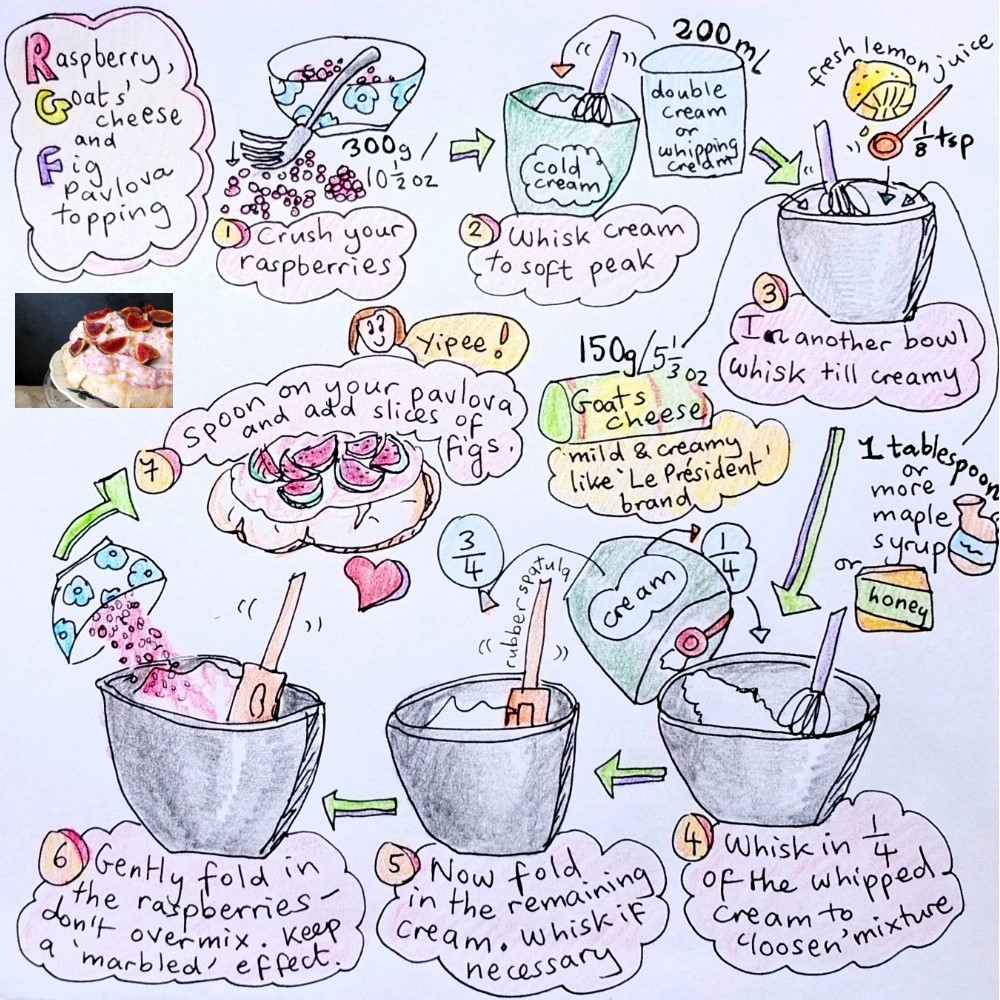 Raspberry,
Goats'
cheese
and
Fig
Pavlova
topping
300g/
10 1/2 oz
1 Crush your
raspberries
200 mL
double
cream
or
whipping
cream
cold
cream
2 Whisk cream
to soft peak
fresh lemon juice
1/8 tsp
3
In another bowl
whisk till creamy
150g/5 1/3 oz
Goats
cheese
mild & creamy
like 'Le Président'
brand
1 tablespoon
or
more
maple
syrup
or
honey
cream
1/4
4 Whisk in 1/4
of the whipped
cream to
'loosen' mixture
3/4
rubber spatula
5 Now fold
in the remaining
cream. Whisk if
necessary
6 Gently fold in
the raspberries –
don't overmix. Keep
a 'marbled' effect.
7 Spoon on your pavlova
and add slices of
figs.
Yipee!